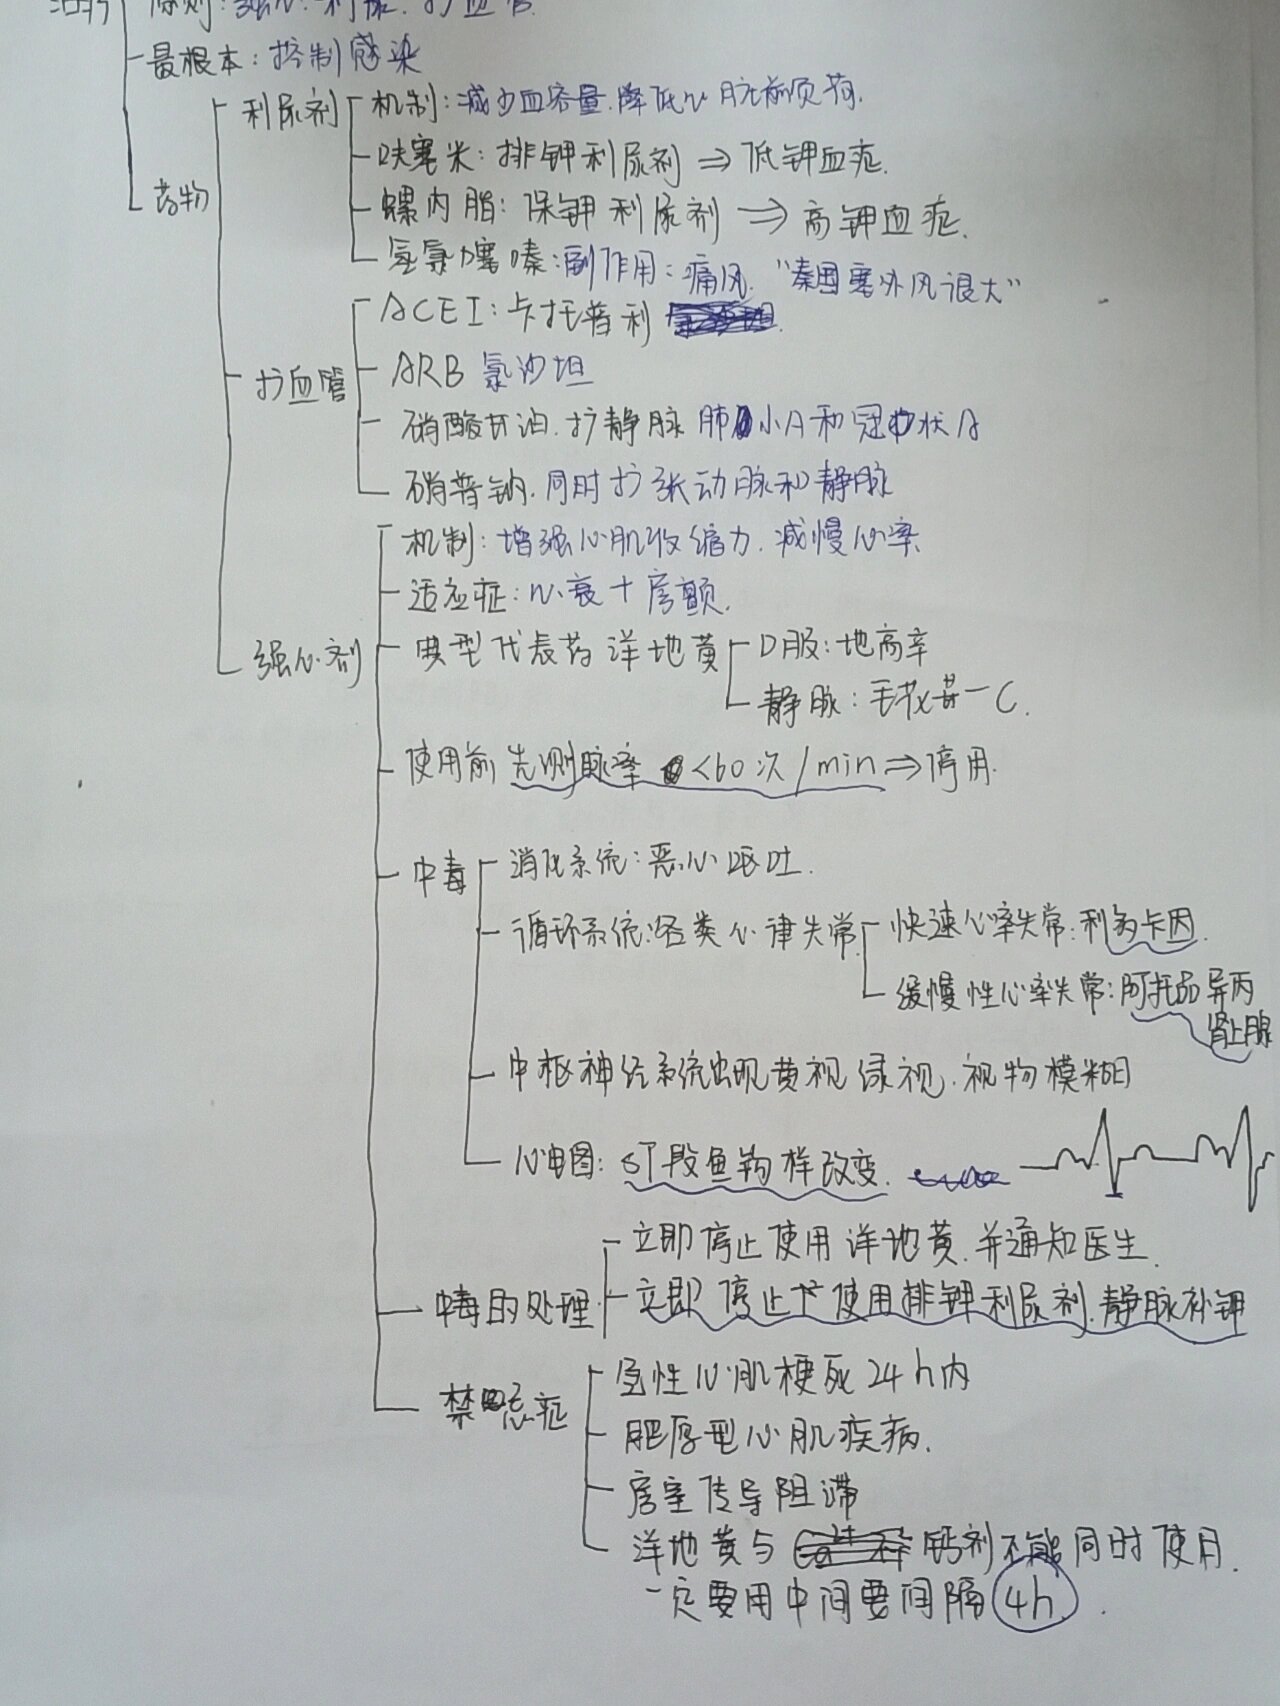 治疗 原则：强心.利尿.扩血管
最根本：控制感染
药物
利尿剂 机制：减少血容量.降低心脏前负荷.
呋塞米：排钾利尿剂 ⇒ 低钾血症.
螺内脂：保钾利尿剂 ⇒ 高钾血症.
氢氯噻嗪：副作用：痛风. “秦国塞外风很大”
扩血管 ACEI：卡托普利
ARB 氯沙坦
硝酸甘油.扩静脉 肺小A和冠状A
硝普钠.同时扩张动脉和静脉
强心剂 机制：增强心肌收缩力.减慢心率
适应症：心衰+房颤.
典型代表药 洋地黄 口服：地高辛
静脉：毛花苷-C.
使用前 先测脉率 <60次/min⇒停用.
中毒 消化系统：恶心呕吐.
循环系统：各类心律失常 快速心率失常：利多卡因.
缓慢性心率失常：阿托品 异丙
肾上腺
中枢神经系统出现黄视 绿视.视物模糊
心电图：ST段鱼钩样改变.
中毒的处理 立即停止使用洋地黄.并通知医生.
立即停止使用排钾利尿剂.静脉补钾
禁忌症 急性心肌梗死24h内
肥厚型心肌疾病.
房室传导阻滞
洋地黄与 钙剂不能同时使用.
一定要用中间要间隔 4h.